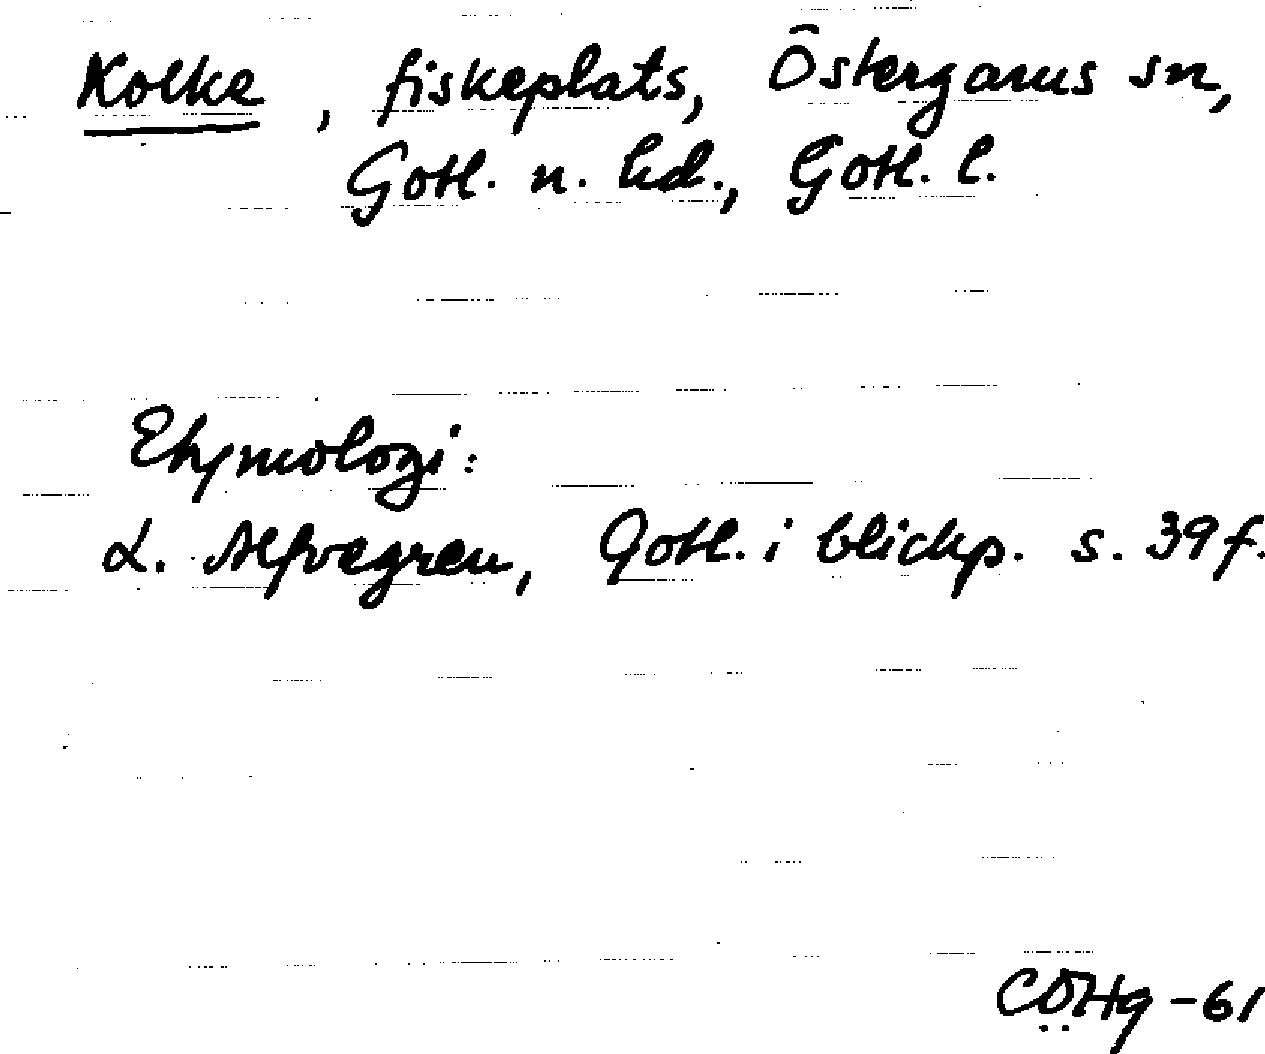 Kolke, fiskeplats, Östergarns sn,
Gotl. n. hd., Gotl. l.
Etymologi:
L. Alfvegren, Gotl. i blickp. s. 39 f.
CÖHg -61